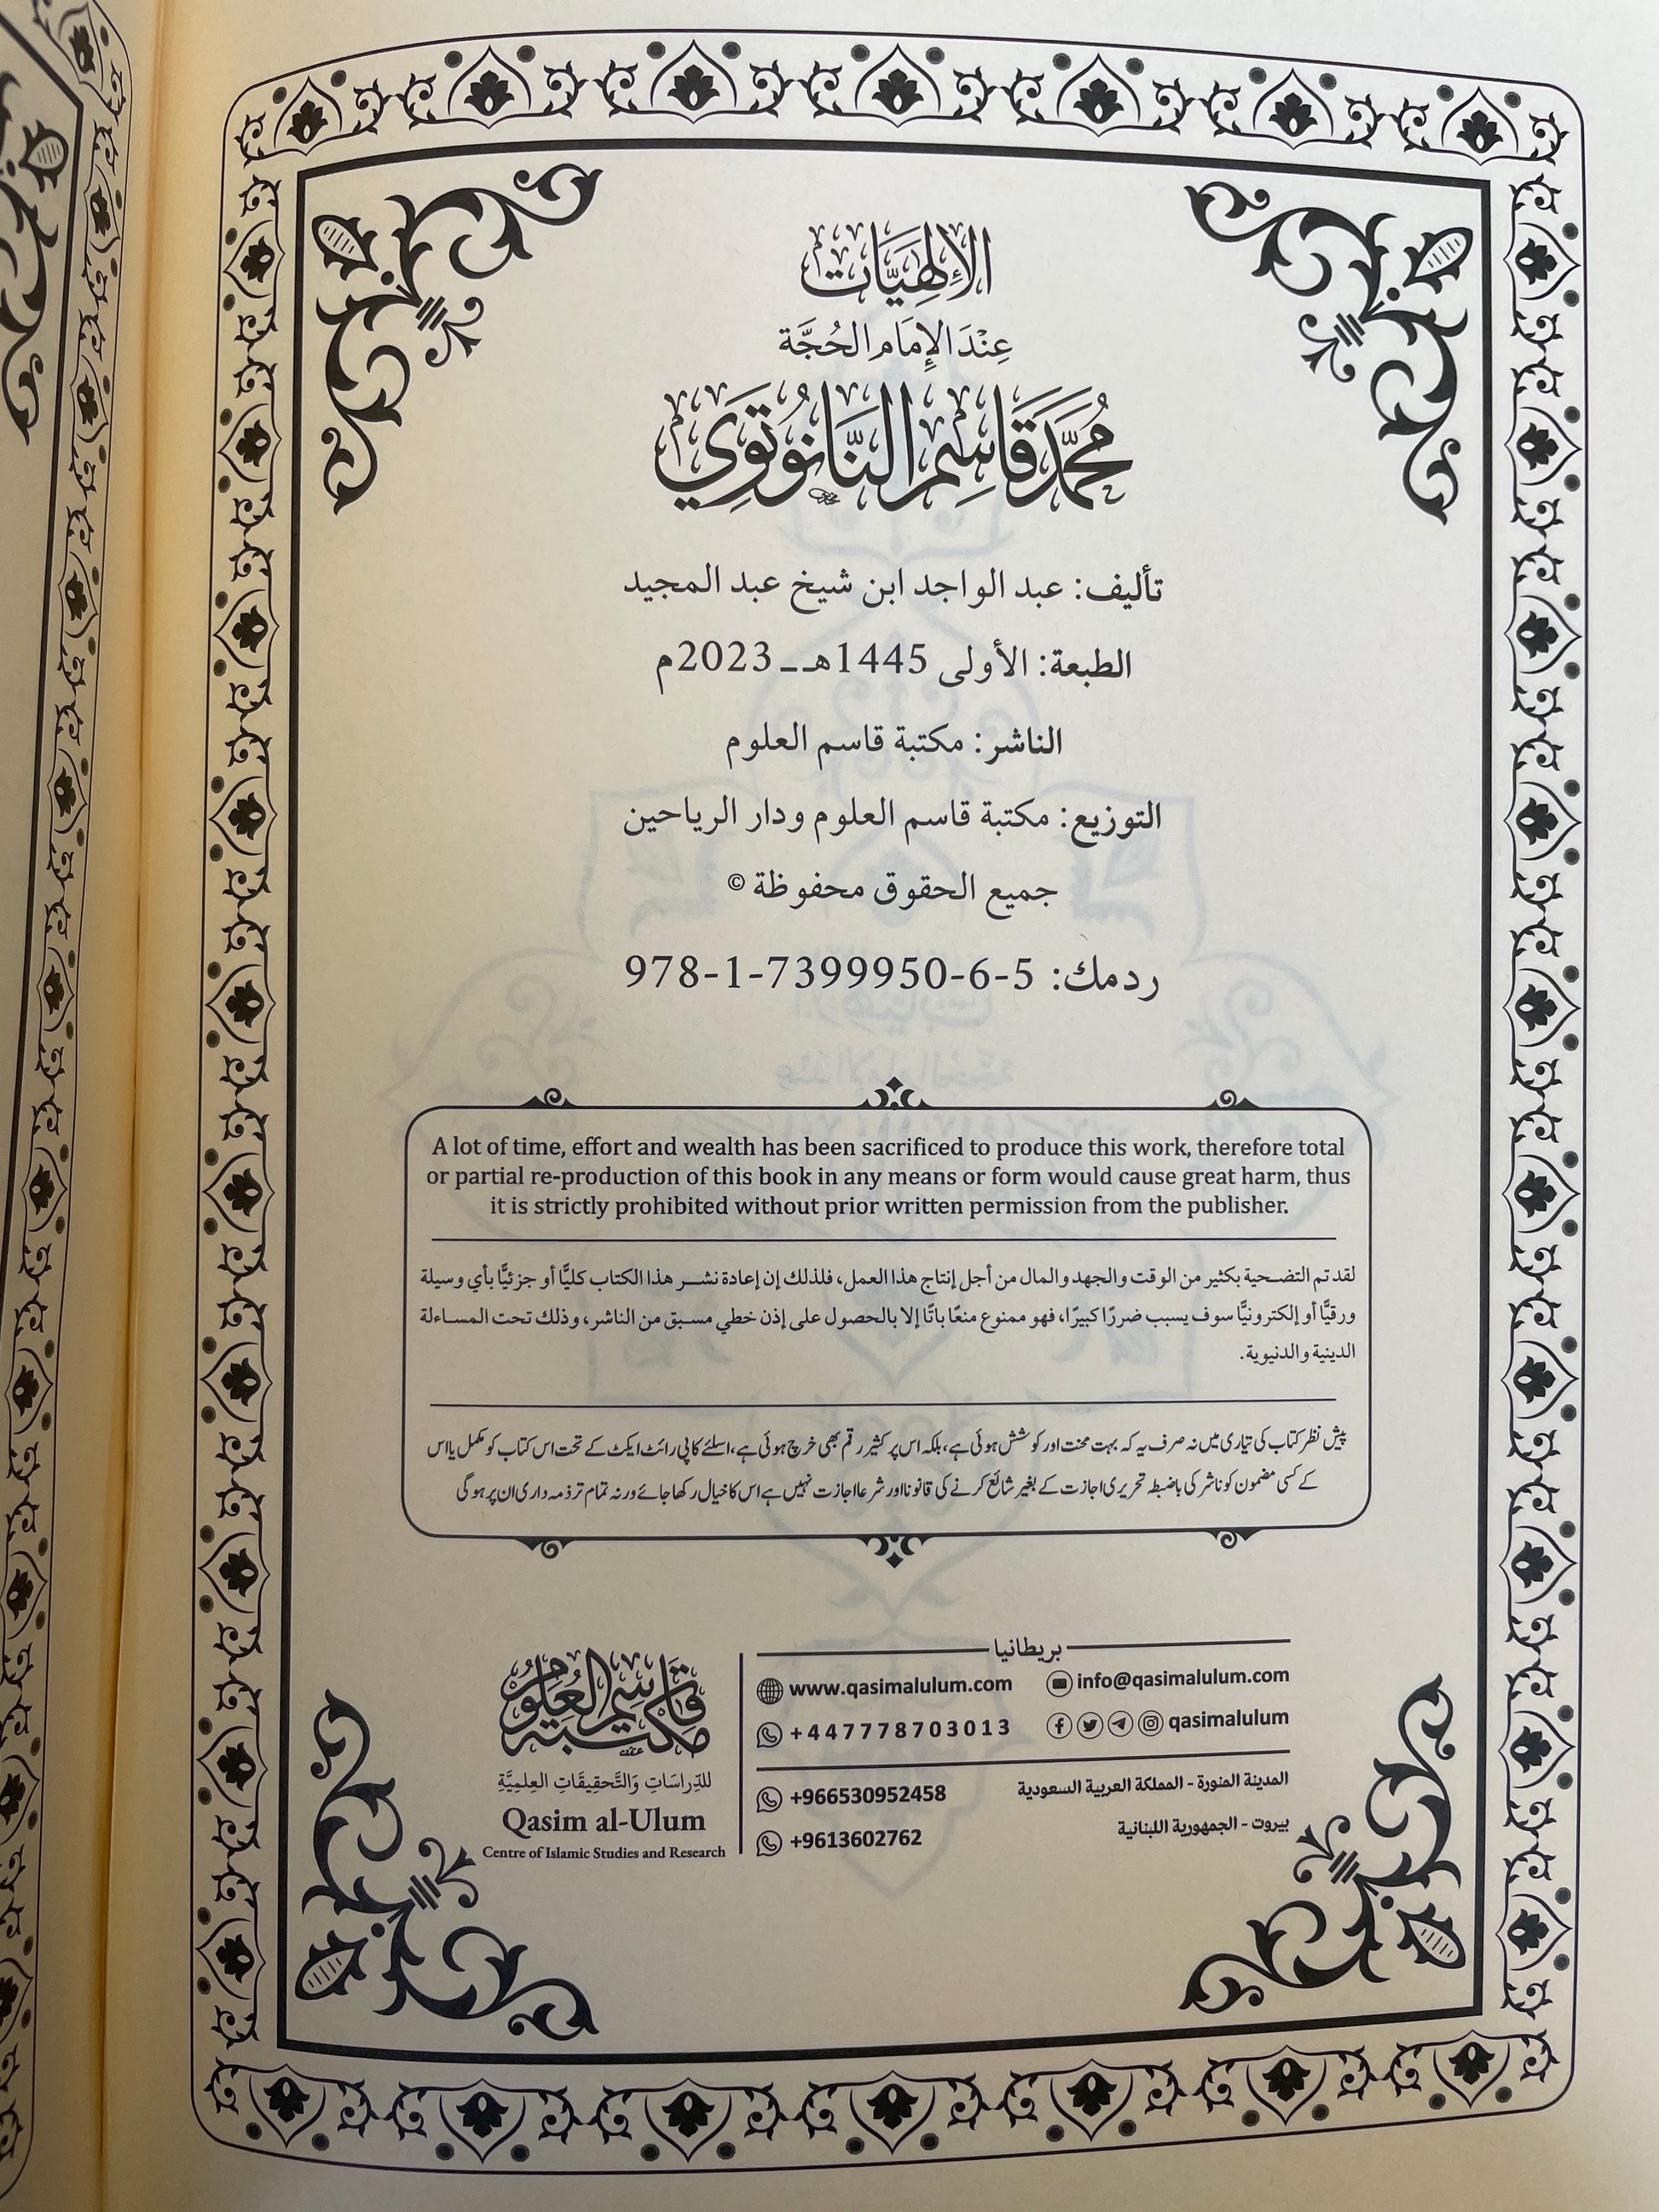 الإلٰهيَّات
عِنْدَ الإِمَامِ الحُجَّة
مُحَمَّد قَاسِم النَّانُوتَوِي
تأليف: عبد الواجد ابن شيخ عبد المجيد
الطبعة: الأولى 1445هـ ـ 2023م
الناشر: مكتبة قاسم العلوم
التوزيع: مكتبة قاسم العلوم ودار الرياحين
جميع الحقوق محفوظة ©
ردمك: 978-1-7399950-6-5
A lot of time, effort and wealth has been sacrificed to produce this work, therefore total
or partial re-production of this book in any means or form would cause great harm, thus
it is strictly prohibited without prior written permission from the publisher.
لقد تم التضحية بكثير من الوقت والجهد والمال من أجل إنتاج هذا العمل، فلذلك إن إعادة نشر هذا الكتاب كليًّا أو جزئيًّا بأي وسيلة
ورقيًّا أو إلكترونيًّا سوف يسبب ضررًا كبيرًا، فهو ممنوع منعًا باتًا إلا بالحصول على إذن خطي مسبق من الناشر، وذلك تحت المساءلة
الدينية والدنيوية.
پیش نظر کتاب کی تیاری میں نہ صرف یہ کہ بہت محنت اور کوشش ہوئی ہے، بلکہ اس پر کثیر رقم بھی خرچ ہوئی ہے، اسلئے کاپی رائٹ ایکٹ کے تحت اس کتاب کو مکمل یا اس
کے کسی مضمون کو ناشر کی باضبطہ تحریری اجازت کے بغیر شائع کرنے کی قانونا اور شرعا اجازت نہیں ہے اس کا خیال رکھا جائے ورنہ تمام تر ذمہ داری ان پر ہوگی
مكتبة قاسم العلوم
للدِّرَاسَاتِ وَالتَّحقِيقَاتِ العِلمِيَّةِ
Qasim al-Ulum
Centre of Islamic Studies and Research
بريطانيا
www.qasimalulum.com info@qasimalulum.com
+447778703013 qasimalulum
+966530952458 المدينة المنورة - المملكة العربية السعودية
+9613602762 بيروت - الجمهورية اللبنانية